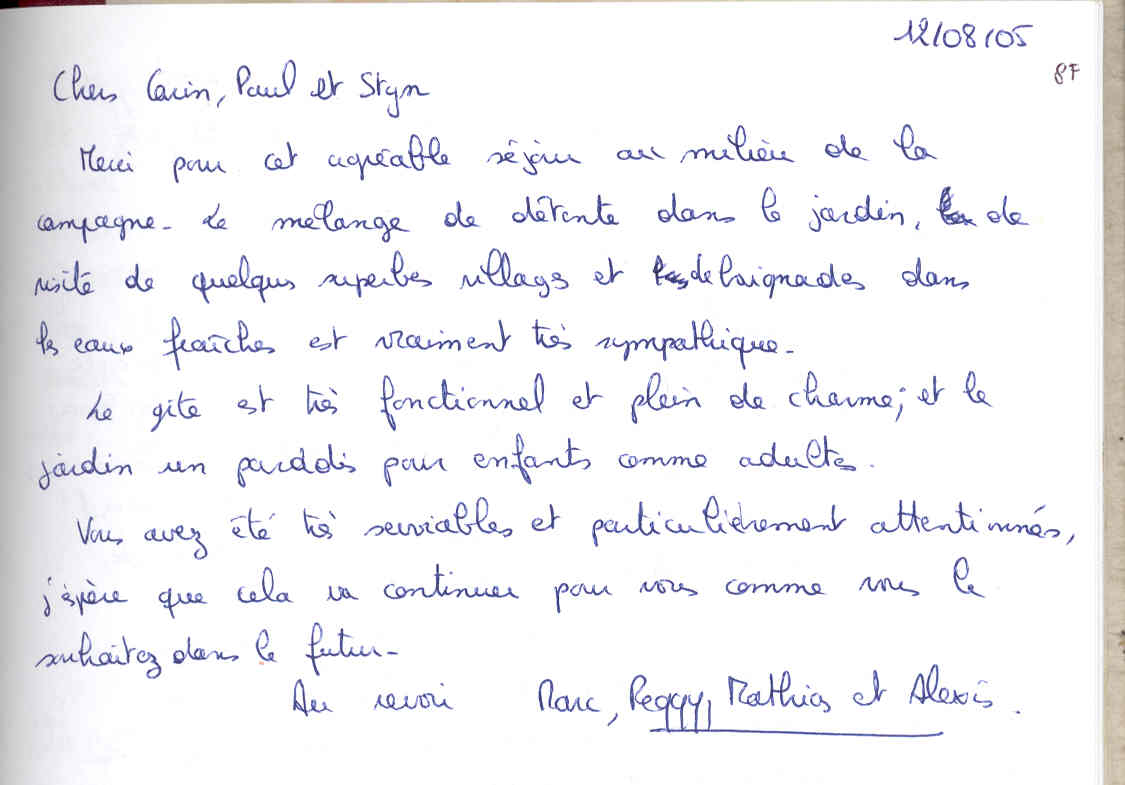 12/08/05
87
Chers Carin, Paul et Styn
Merci pour cet agréable séjour au milieu de la
campagne. Le mélange de détente dans le jardin, de
visite de quelques superbes villages et de baignades dans
les eaux fraîches est vraiment très sympathique.
Le gite est très fonctionnel et plein de charme; et le
jardin un paradis pour enfants comme adultes.
Vous avez été très serviables et particulièrement attentionnés,
j'espère que cela va continuer pour vous comme vous le
souhaitez dans le futur.
Au revoir Marc, Peggy, Mathias et Alexis.